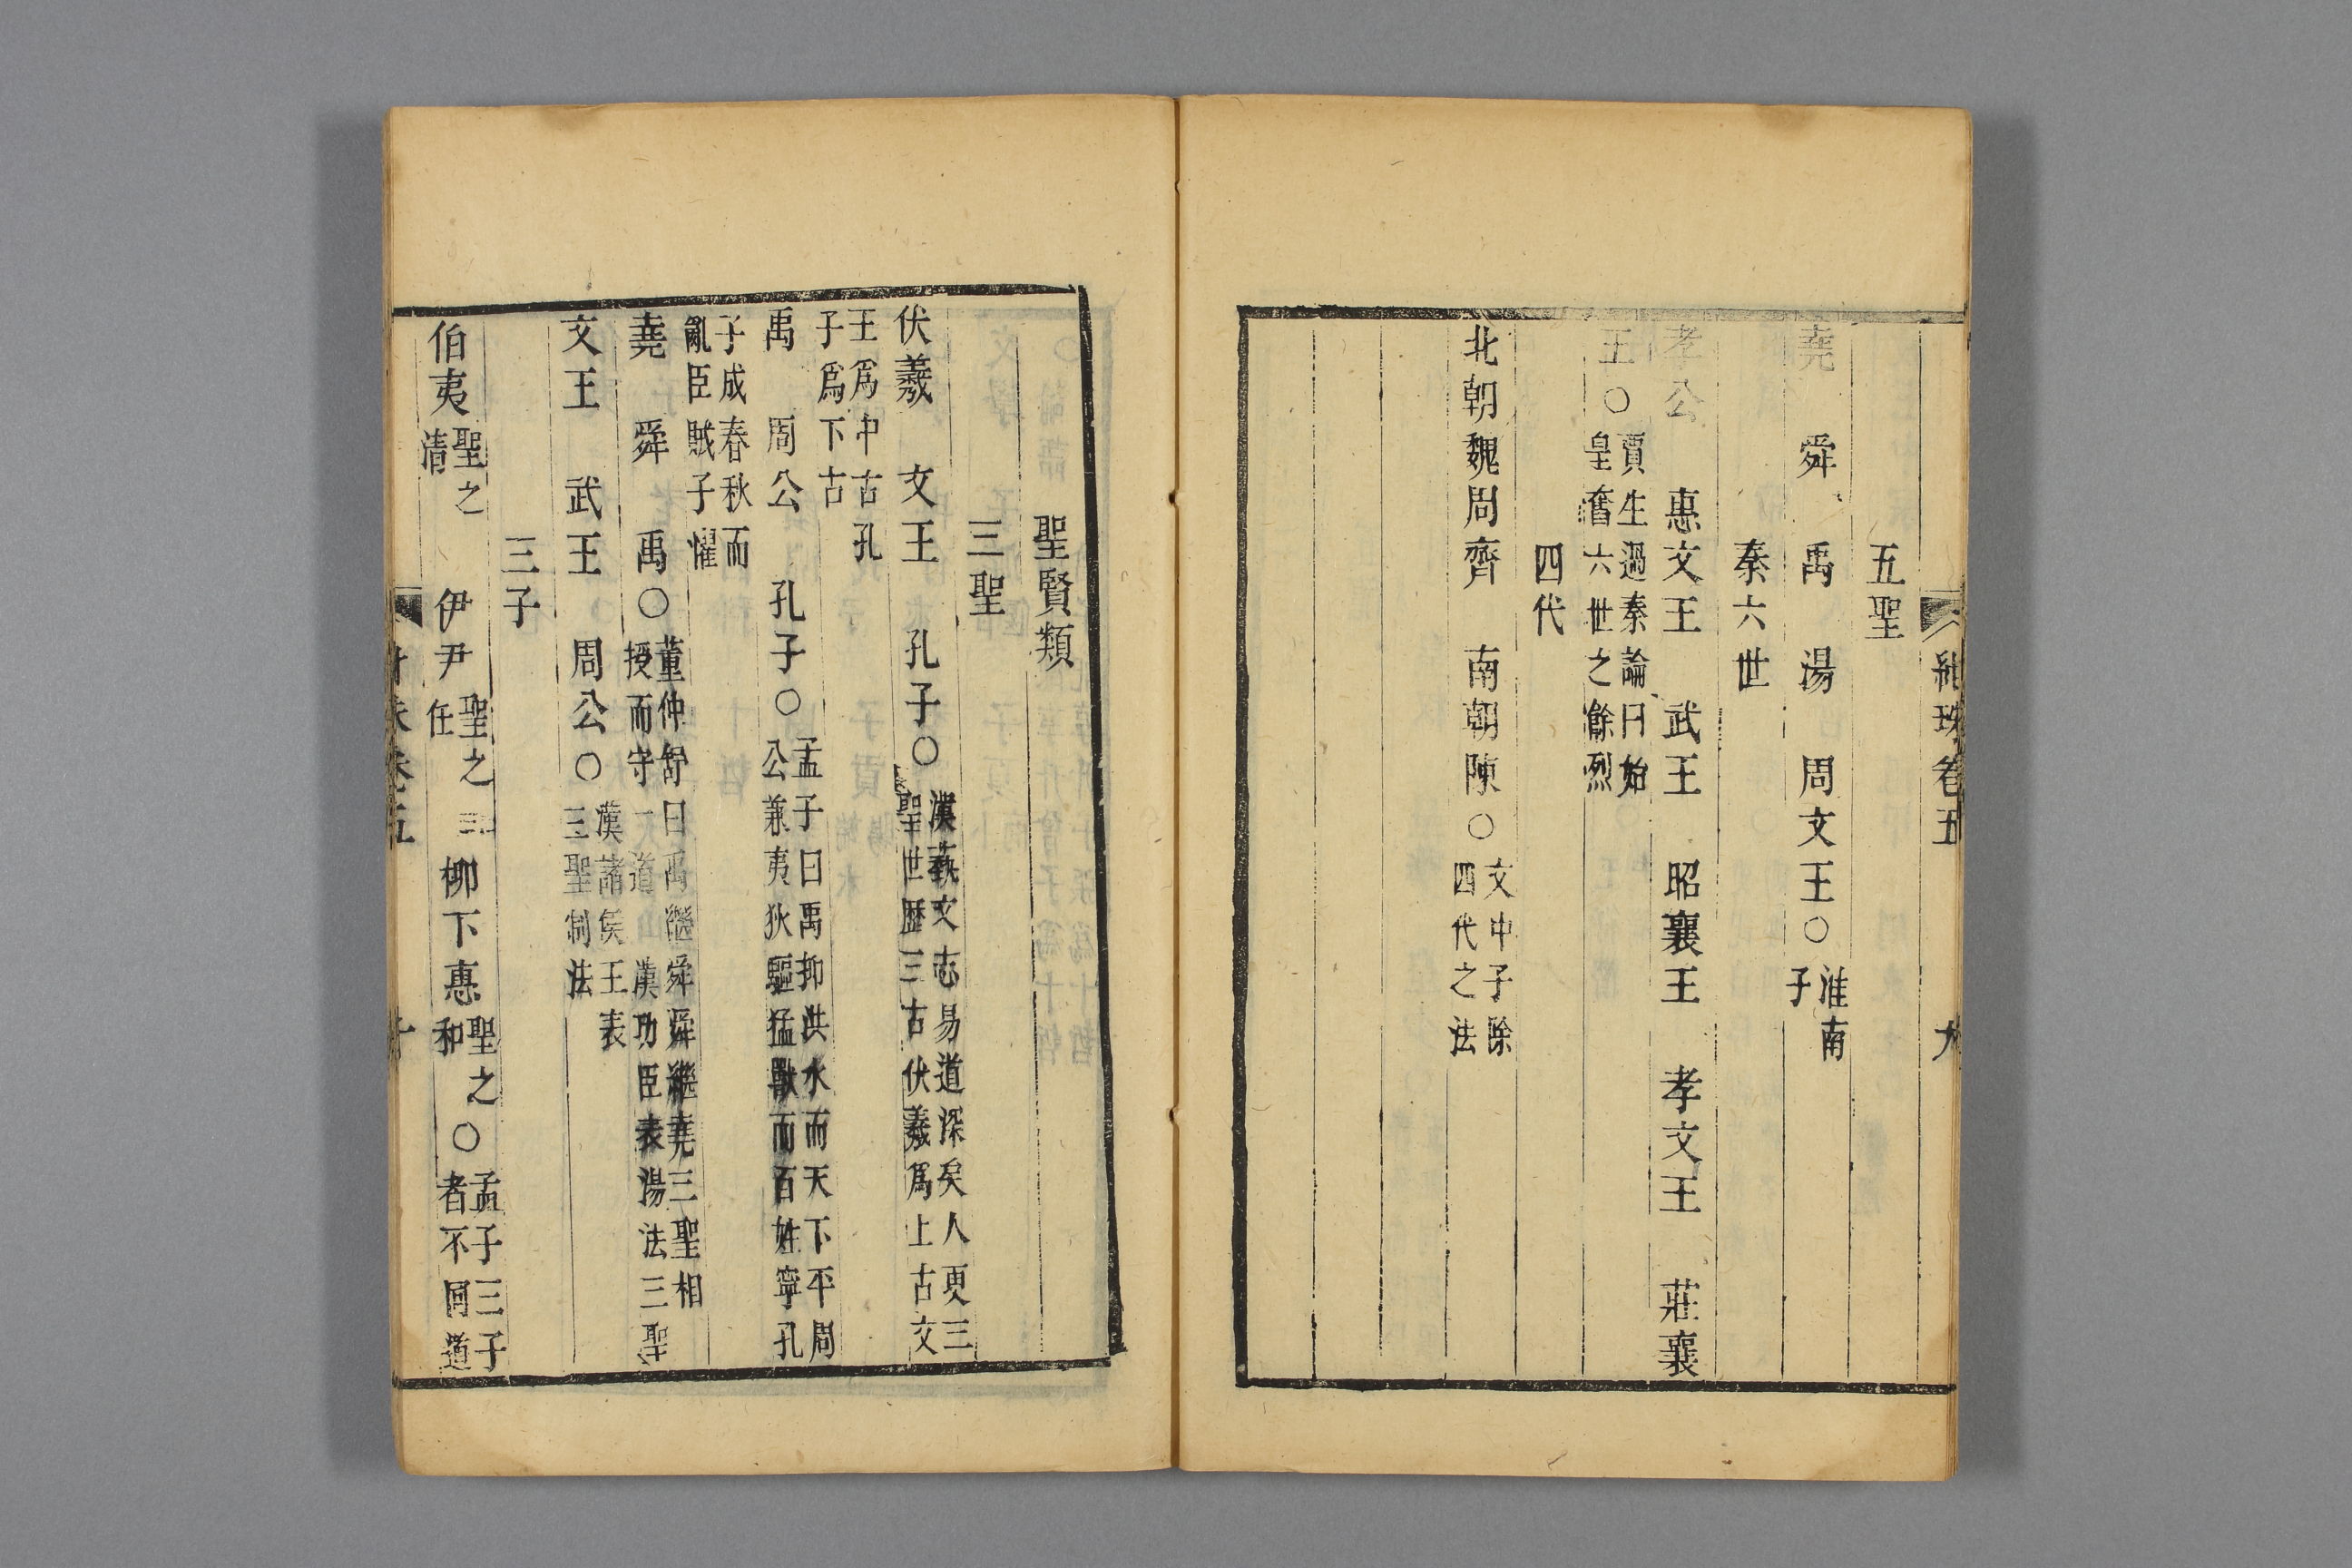 紺珠卷五 九
五聖
堯 舜 禹 湯 周文王○淮南
子
秦六世
孝公 惠文王 武王 昭襄王 孝文王 莊襄
王○賈生過秦論曰始
皇奮六世之餘烈
四代
北朝魏周齊 南朝陳○文中子除
四代之法
聖賢類
三聖
伏羲 文王 孔子○漢藝文志易道深矣人更三
聖世歷三古伏羲爲上古文
王爲中古孔
子爲下古
禹 周公 孔子○孟子曰禹抑洪水而天下平周
公兼夷狄驅猛獸而百姓寧孔
子成春秋而
亂臣賊子懼
堯 舜 禹○董仲舒曰禹繼舜舜繼堯三聖相
授而守一道 漢功臣表湯法三聖
文王 武王 周公○漢諸侯王表
三聖制法
三子
伯夷聖之
清 伊尹聖之
任 柳下惠聖之
和○孟子三子
者不同道
卷五 十